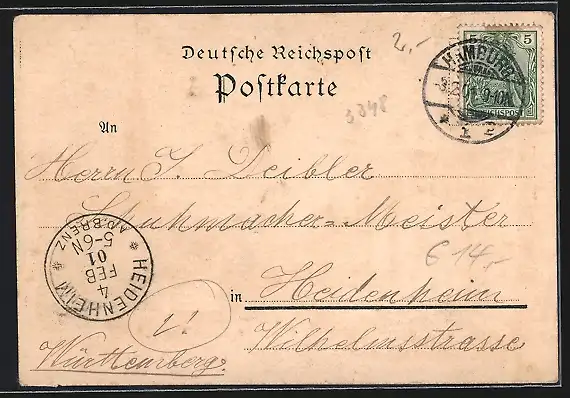 Deutsche Reichspost
Postkarte
2,-
5
HAMBURG
REICHSPOST
3348
An
Herrn J. Deibler
Schuhmacher=Meister
in Heidenheim
Wilhelmsstrasse
Württemberg.
€ 14,-
HEIDENHEIM
A/D BRENZ
5-6N
4 FEB 01